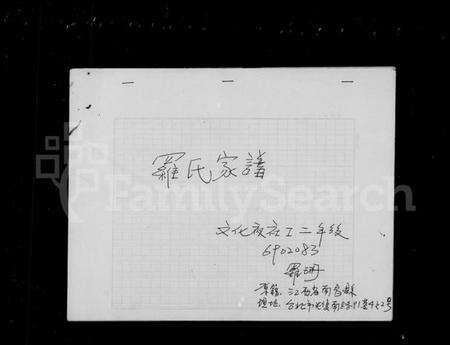 羅氏家譜
文化夜社工二年級
6902083
羅珊
原籍:江西省南昌縣
現址:台北市
FamilySearch